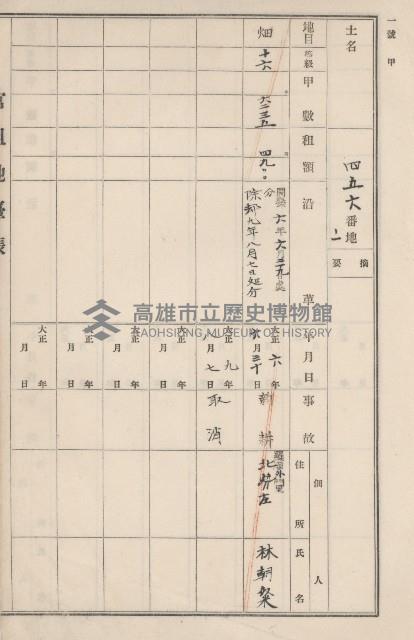 一號 甲
土名
四五六番地
二
摘要
地目 等級 甲數 租額 沿革 年月日 事故 佃人 住所 氏名
畑 十六 四九
開墾 六年六月二九日處分
除却九年八月七日処分
大正 六年 六月三十日
耕
北勢庄
林朝粲
大正 九年 八月七日
取消
大正 年 月 日
大正 年 月 日
大正 年 月 日
大正 年 月 日
官租地臺帳
高雄市立歷史博物館
KAOHSIUNG MUSEUM OF HISTORY